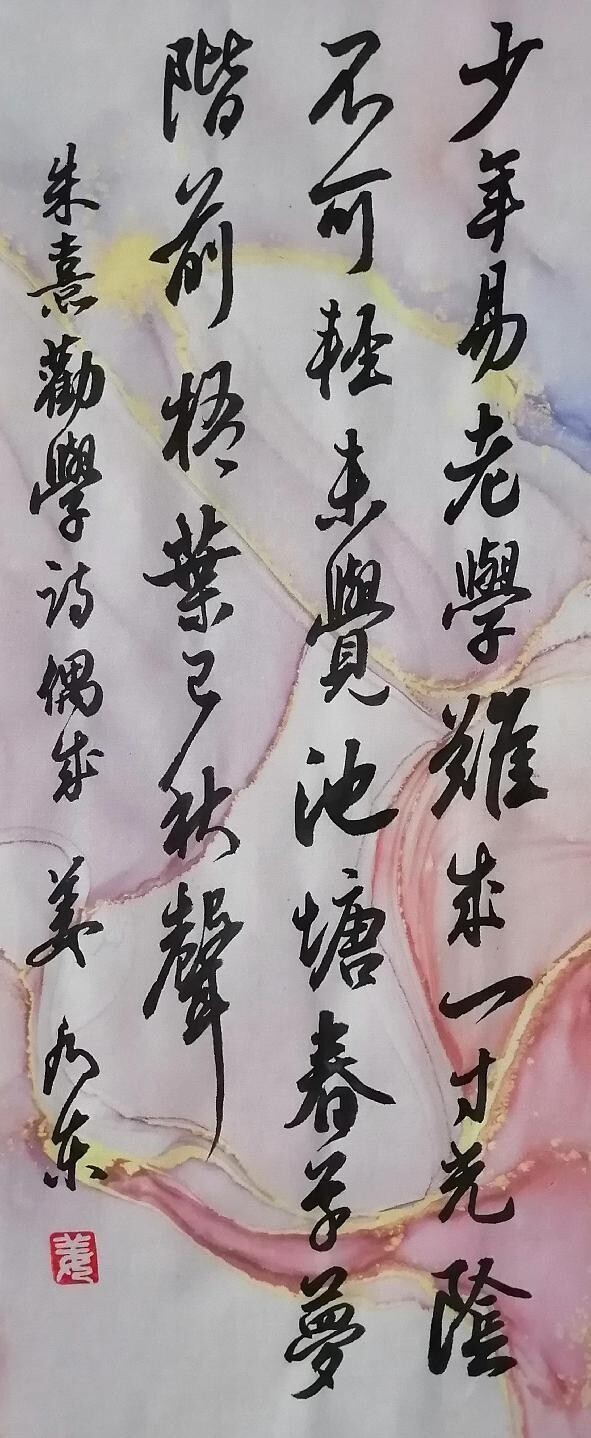 少年易老學難成一寸光陰
不可輕未覺池塘春草夢
階前梧葉已秋聲
朱熹勸學詩偶成 姜永东
姜